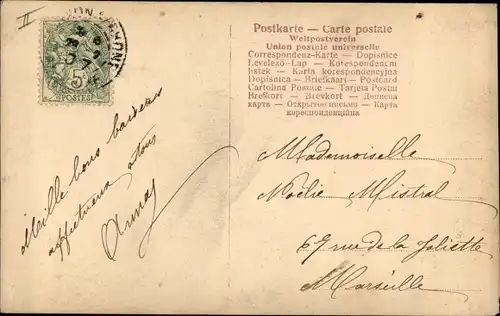 II
5c
POSTES
Mille bons baisers
affectueux à tous
Postkarte — Carte postale
Weltpostverein
Union postale universelle
Correspondenz-Karte — Dopisnice
Levelező-Lap — Korespondencni
listek — Karta korespondencyjna
Dopisnica — Briefkaart — Postcard
Cartolina Postale — Tarjeta Postal
Brefkort — Brevkort — Дописна
карта — Открытое письмо — Карта
кореспонденційна
Mademoiselle
Noélie Mistral
67 rue de la Joliette
Marseille